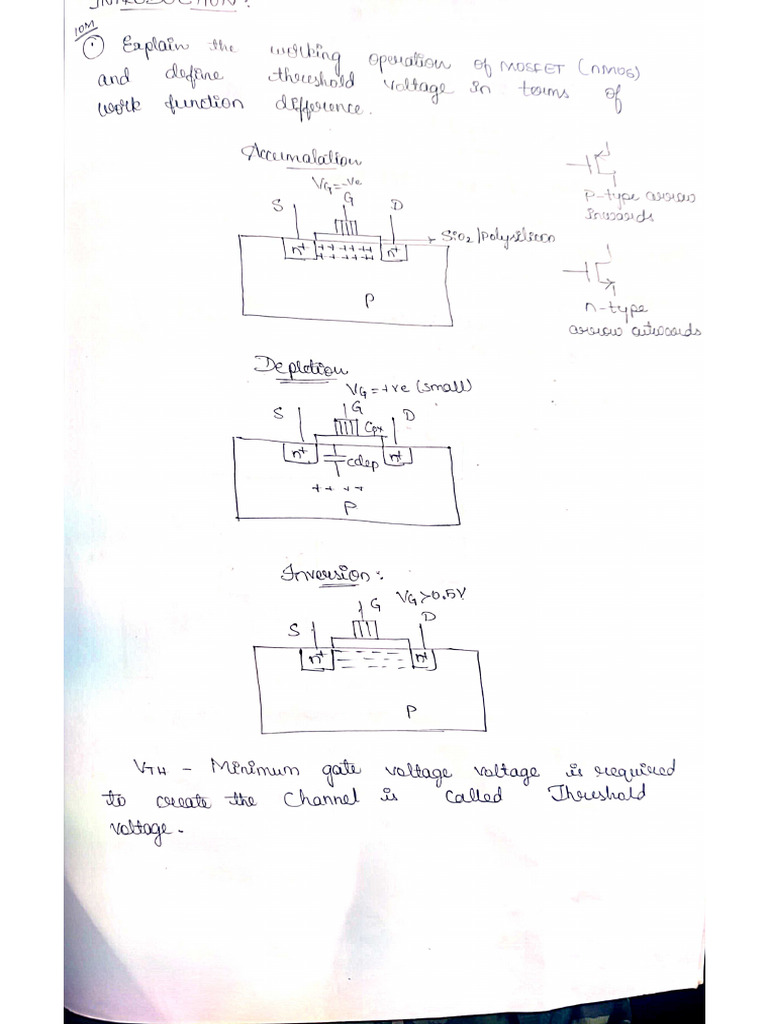 INTRODUCTION:
10M
① Explain the working operation of MOSFET (nMOS)
and define threshold voltage in terms of
work function difference.
Accumalation
VG=-ve
G
S
D
n+
++ ++ ++
++ ++ ++
n+
→ SiO2/Polysilicon
P
p-type arrow
inwards
n-type
arrow outwards
Depletion
VG=+ve (small)
S
G
D
Cox
n+
Cdep
n+
+ + - +
P
Inversion:
G
VG>0.5V
S
D
n+
n+
P
VTH - Minimum gate voltage voltage is required
to create the channel is called Threshold
voltage.